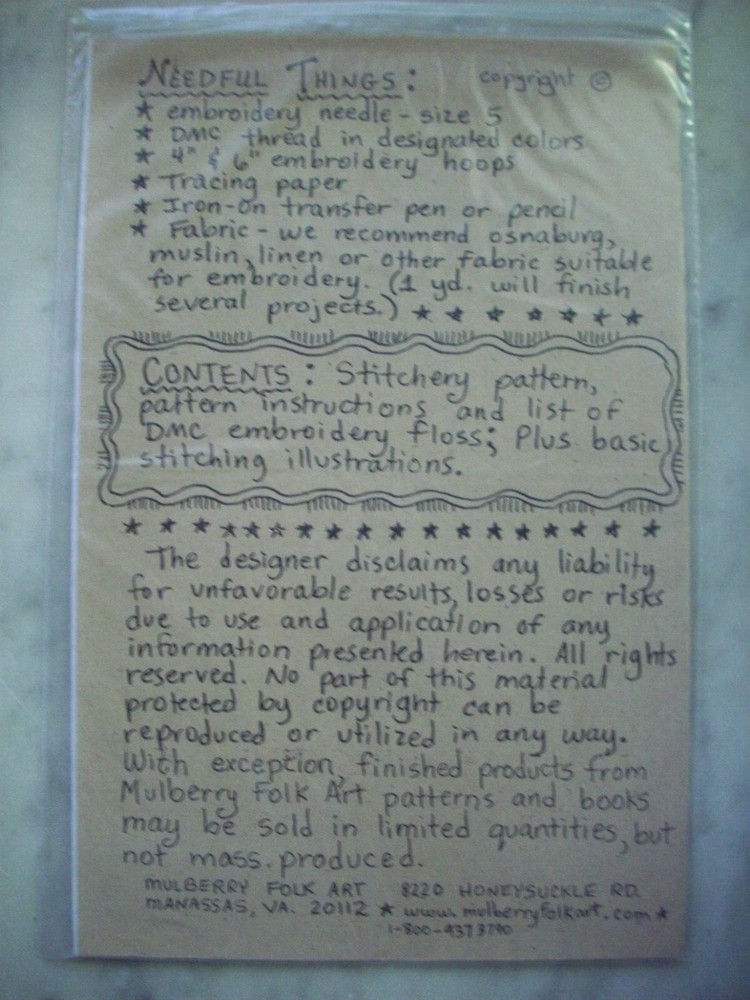 NEEDFUL THINGS: copyright ©
★ embroidery needle - size 5
★ DMC thread in designated colors
★ 4" & 6" embroidery hoops
★ Tracing paper
★ Iron-on transfer pen or pencil
★ Fabric - we recommend osnaburg,
muslin, linen or other fabric suitable
for embroidery. (1 yd. will finish
several projects.) ★ ★ ★ ★ ★ ★ ★
CONTENTS: Stitchery pattern,
pattern instructions and list of
DMC embroidery floss; Plus basic
stitching illustrations.
★ ★ ★ ★ ★ ★ ★ ★ ★ ★ ★ ★ ★ ★ ★ ★ ★ ★
The designer disclaims any liability
for unfavorable results, losses or risks
due to use and application of any
information presented herein. All rights
reserved. No part of this material
protected by copyright can be
reproduced or utilized in any way.
With exception, finished products from
Mulberry Folk Art patterns and books
may be sold in limited quantities, but
not mass.produced.
MULBERRY FOLK ART 8220 HONEYSUCKLE RD.
MANASSAS, VA. 20112 ★ www.mulberryfolkart.com ★
1-800-937 3790